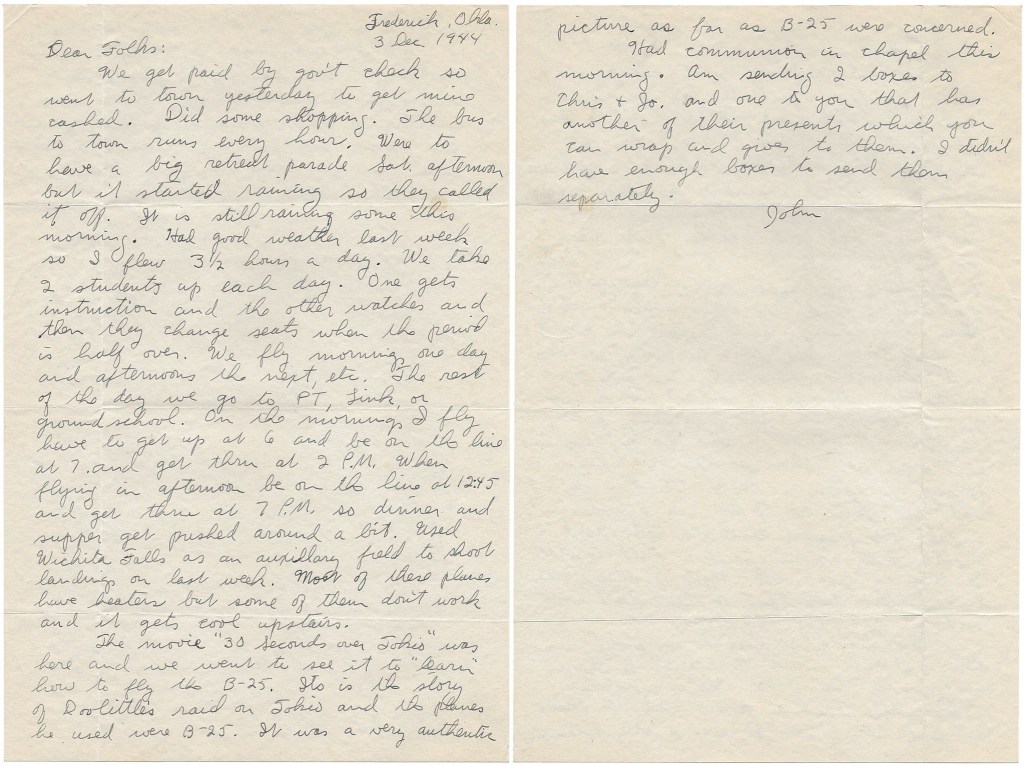 Frederick, Okla.
3 Dec 1944
Dear Folks:
We get paid by gov't check so
went to town yesterday to get mine
cashed. Did some shopping. The bus
to town runs every hour. Were to
have a big retreat parade Sat. afternoon
but it started raining so they called
it off. It is still raining some this
morning. Had good weather last week
so I flew 3 1/2 hours a day. We take
2 students up each day. One gets
instruction and the other watches and
then they change seats when the period
is half over. We fly mornings one day
and afternoons the next, etc. The rest
of the day we go to PT, Link, or
ground school. On the mornings I fly
have to get up at 6 and be on the line
at 7. and get thru at 2 P.M. When
flying in afternoon be on the line at 12:45
and get thru at 7 P.M. so dinner and
supper get pushed around a bit. Used
Wichita Falls as an auxillary field to shoot
landings on last week. Most of these planes
have heaters but some of them don't work
and it gets cool upstairs.
The movie "30 Seconds over Tokio" was
here and we went to see it to "learn"
how to fly the B-25. Its is the story
of Doolittle's raid on Tokio and the planes
he used were B-25. It was a very authentic
picture as far as B-25 were concerned.
Had communion in chapel this
morning. Am sending 2 boxes to
Chris + Jo. and one to you that has
another of their presents which you
can wrap and give to them. I didn't
have enough boxes to send them
separately.
John